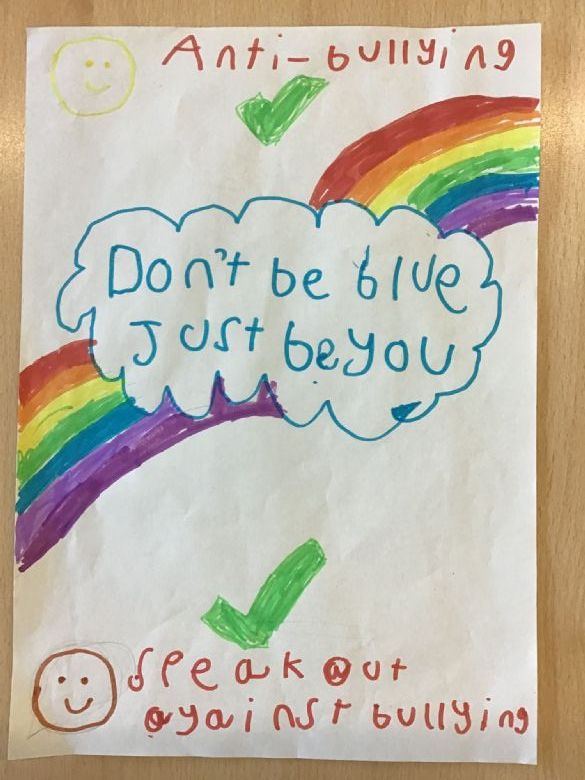 Anti-bullying
Don't be blue
Just be you
Speak out
against bullying